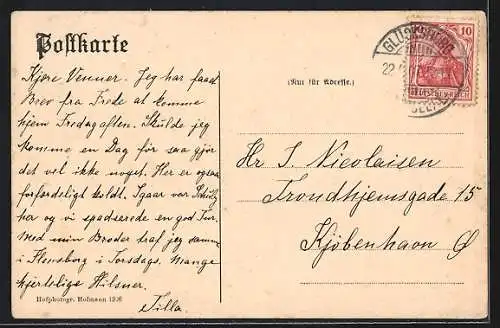 Postkarte
GLÜCKSBURG
22.
10
DEUTSCHES REICH
(Nur für Adresse.)
Kjære Venner. Jeg har faaet
Brev fra Frede at komme
hjem Fredagaften. Skulde jeg
komme en Dag før saa gjør
det vel ikke noget. Her er ogsaa
forfærdeligt koldt. Igaar var Schütz
her og vi spadserede en god Tur.
Med min Broder traf jeg sammen
i Flensborg i Torsdags. Mange
hjertelige Hilsner.
Tilla.
Hr J. Nicolaisen
Trondhjemsgade 15
Kjøbenhavn Ø
Hofphotogr. Hofmann